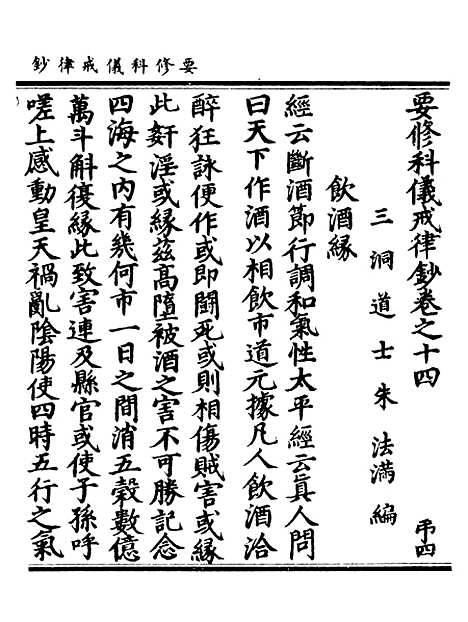 要修科儀戒律鈔
要修科儀戒律鈔卷之十四　　弔四
三洞道士朱法滿編
飲酒緣
經云斷酒節行調和氣性太平經云真人問
曰天下作酒以相飲市道元據凡人飲酒洽
醉狂詠便作或即鬪死或則相傷賊害或緣
此姧淫或緣茲高墮被酒之害不可勝記念
四海之內有幾何市一日之間消五穀數億
萬斗斛復緣此致害連及縣官或使子孫呼
嗟上感動皇天禍亂陰陽使四時五行之氣